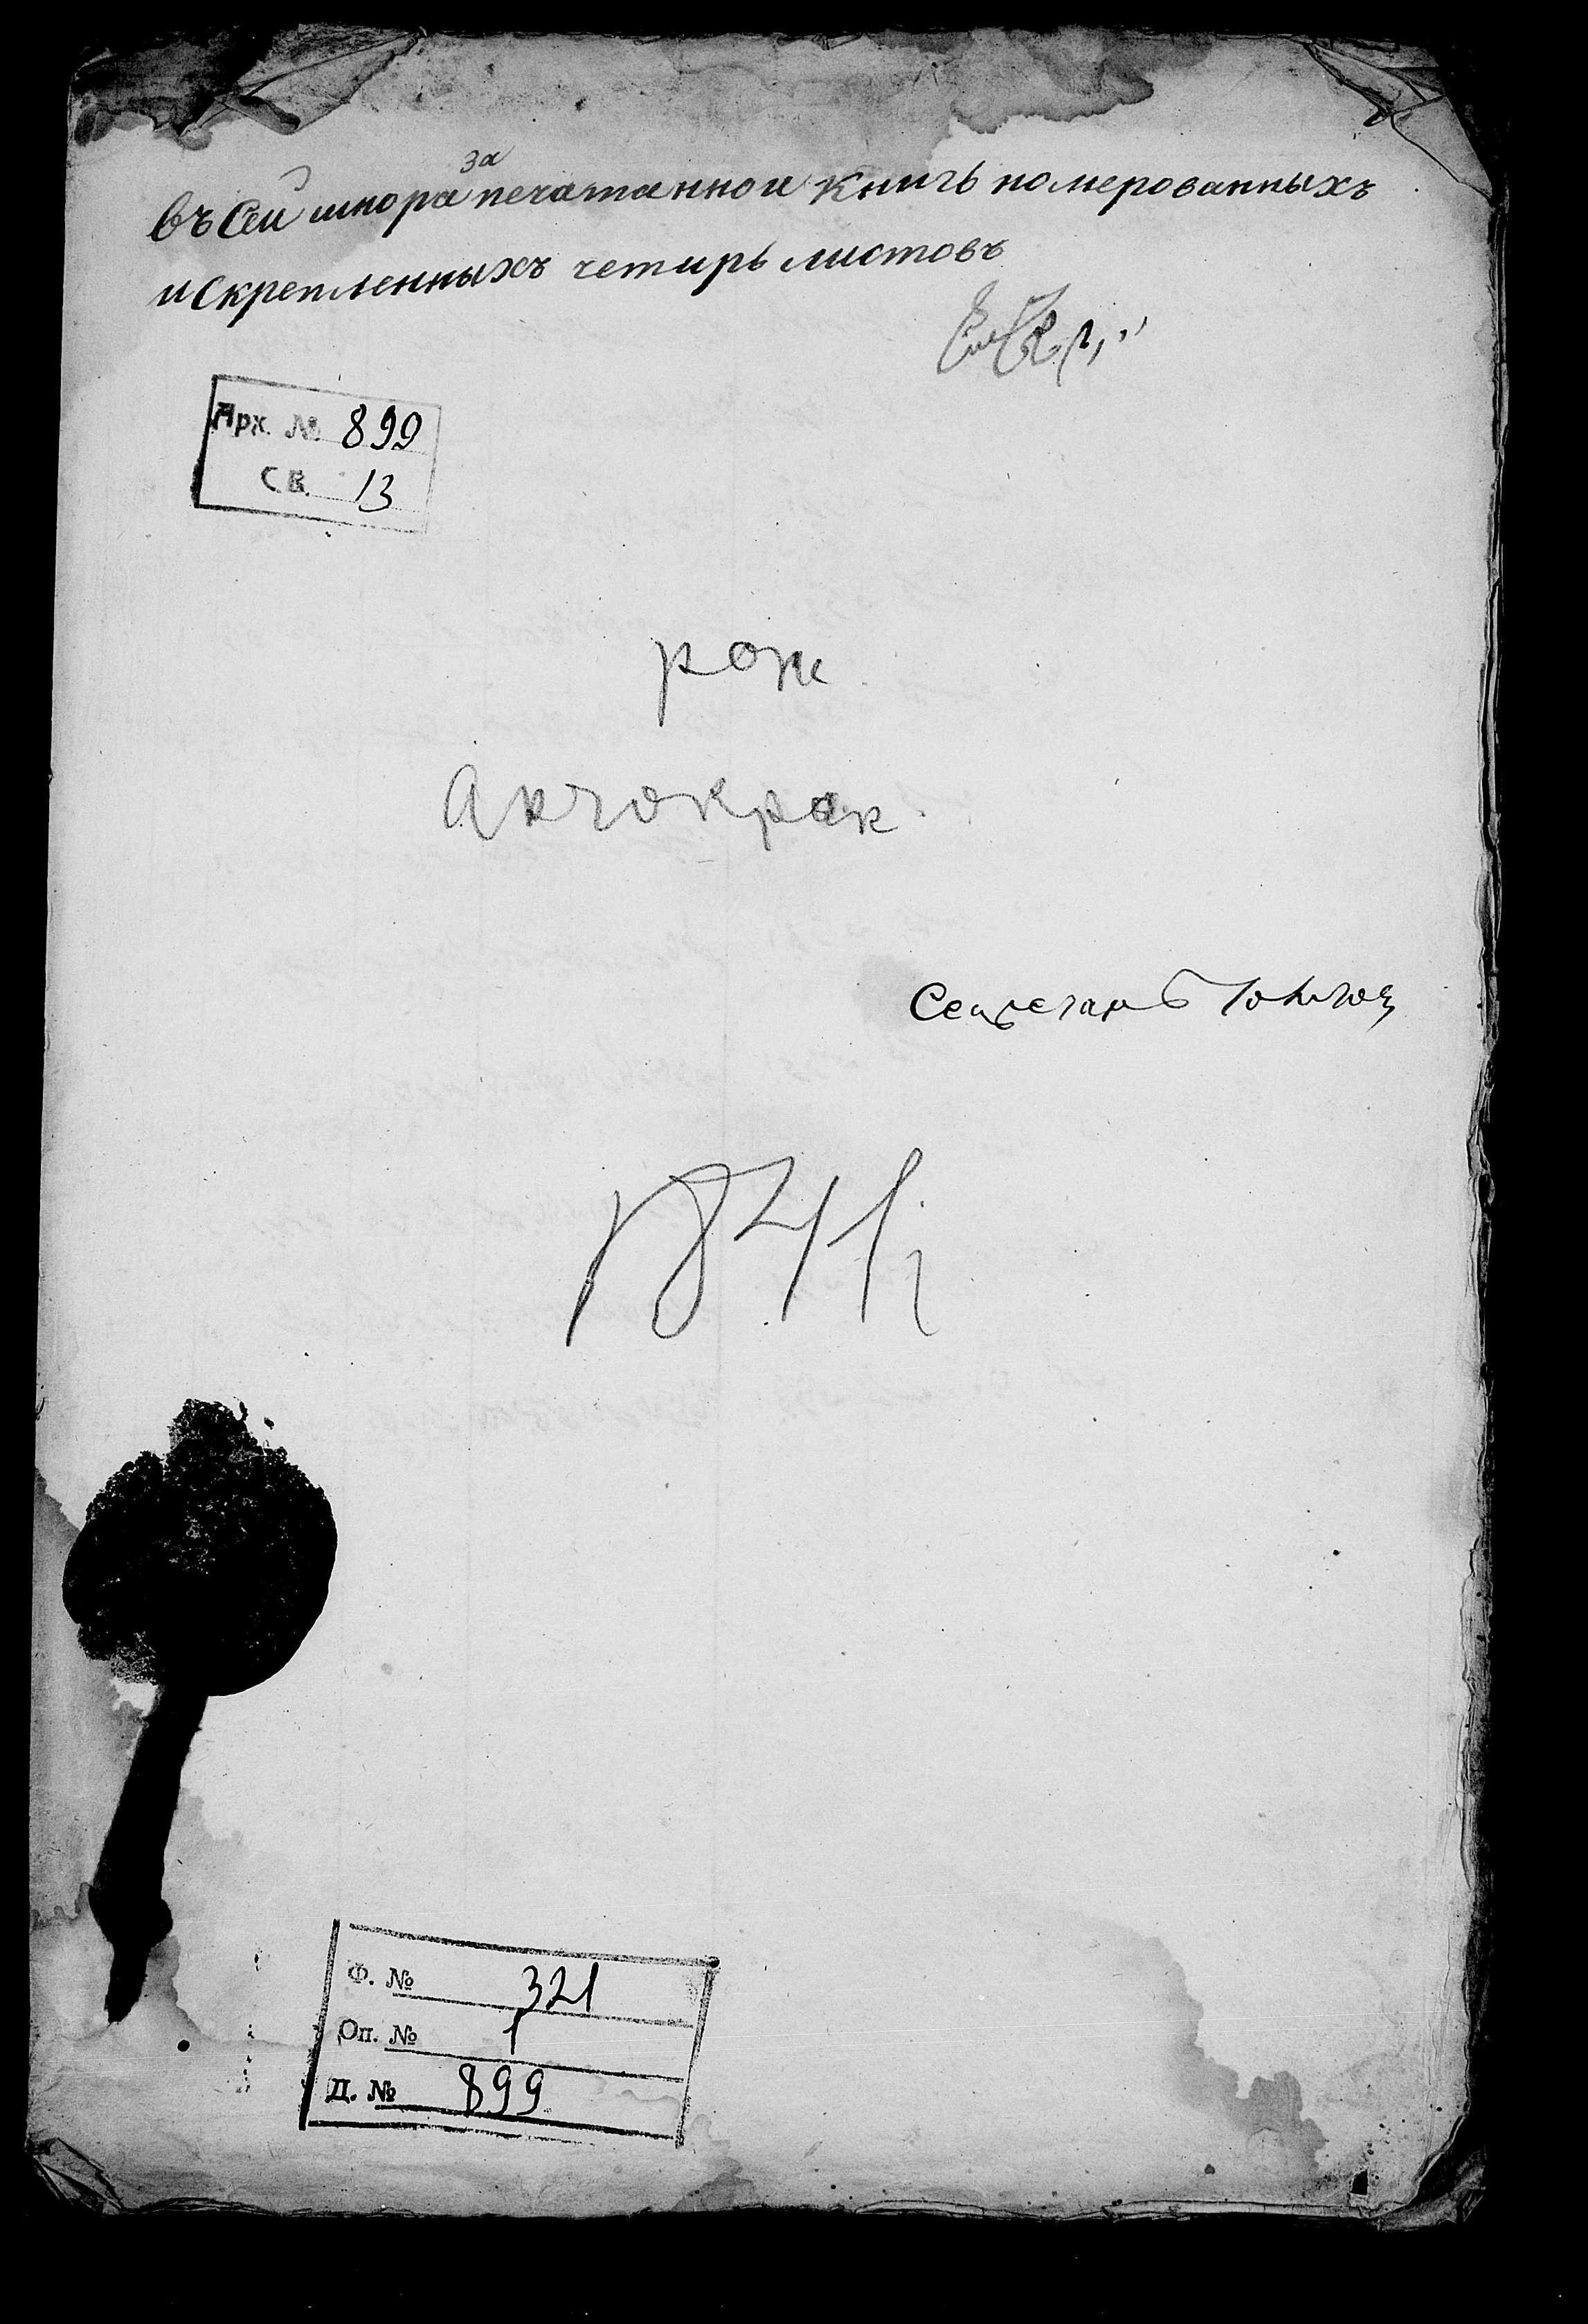 въ сей шнурозапечатанной книгь номерованныхъ
и скрепленныхъ четирь листовъ
Арх. № 899
Св. 13
рож
Акчокрак
Секретарь
1841
Ф. № 321
Оп. № 1
Д. № 899